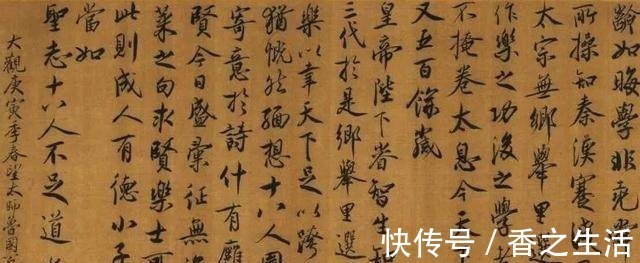 齡如晦學非堯
所操知秦漢蹇
太宗無鄉舉里
作樂之功後之學
不掩卷太息今天
又五百餘歲
皇帝陛下睿智生
三代於是鄉舉里選
樂以韋天下足以跨
猶慨然緬想十八人圖
寄意於詩什有廱
賢今日盛彙征無
萊之句求賢樂士
此則成人有德小子
當如
聖志十八人不足道
大觀庚寅季春望太師魯國公
快传号 / 香之生活